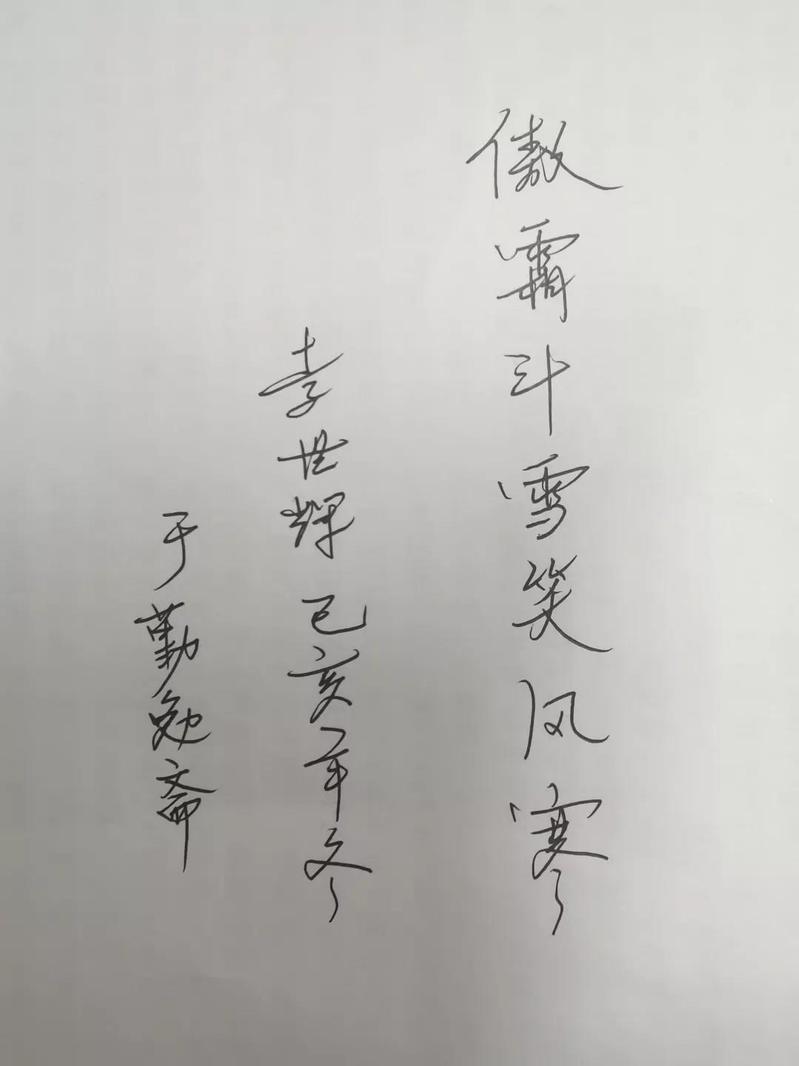 傲霜斗雪笑风寒
李世辉己亥年冬
于勤勉斋